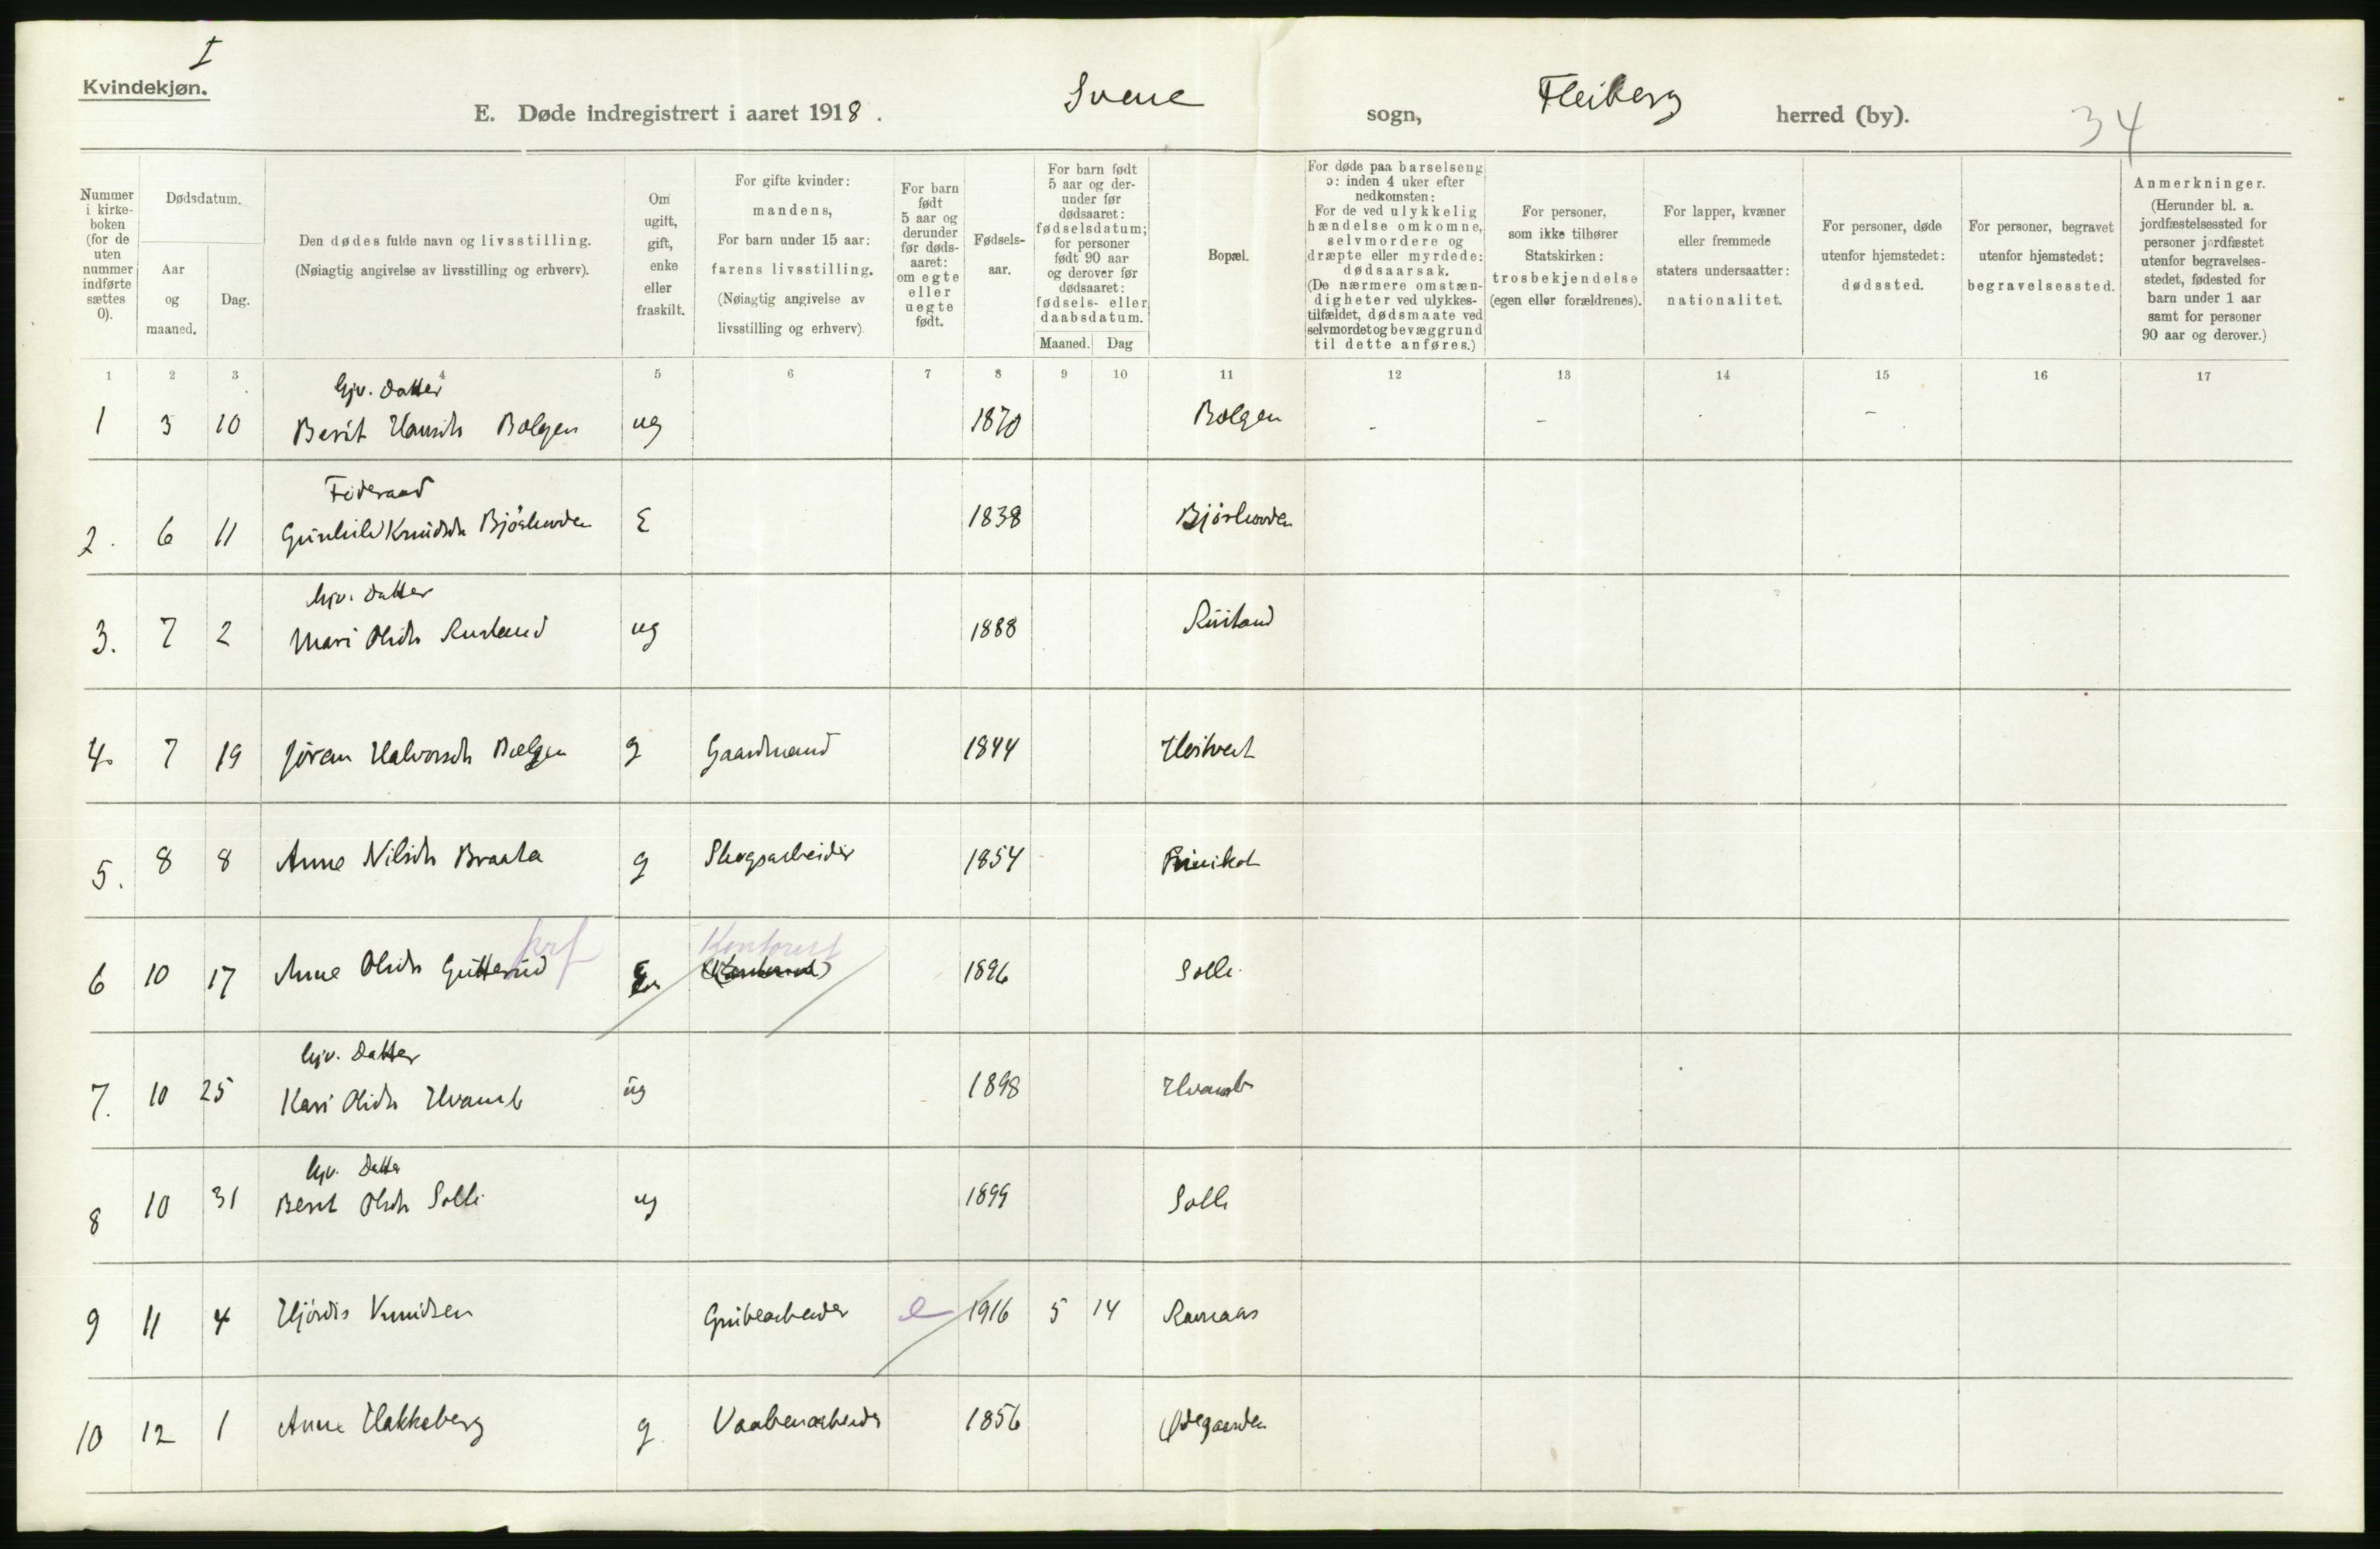 I
Kvindekjøn.
E. Døde indregistrert i aaret 1918. Svene sogn, Fleiberg herred (by). 34
Nummer i kirke-boken (for de uten nummer indførte sættes 0).
Dødsdatum.
Aar og maaned.
Dag.
Den dødes fulde navn og livsstilling.
(Nøiagtig angivelse av livsstilling og erhverv).
Om ugift, gift, enke eller fraskilt.
For gifte kvinder: mandens,
For barn under 15 aar: farens livsstilling.
(Nøiagtig angivelse av livsstilling og erhverv)
For barn født 5 aar og derunder før døds-aaret: om egte eller uegte født.
Fødsels-aar.
For barn født 5 aar og der-under før dødsaaret: fødselsdatum; for personer født 90 aar og derover før dødsaaret: fødsels- eller daabsdatum.
Maaned.
Dag
Bopæl.
For døde paa barselseng ɔ: inden 4 uker efter nedkomsten:
For de ved ulykkelig hændelse omkomne, selvmordere og dræpte eller myrdede: dødsaarsak.
(De nærmere omstæn-digheter ved ulykkes-tilfældet, dødsmaate ved selvmordet og bevæggrund til dette anføres.)
For personer, som ikke tilhører Statskirken: trosbekjendelse (egen eller forældrenes).
For lapper, kvæner eller fremmede staters undersaatter: nationalitet.
For personer, døde utenfor hjemstedet: dødssted.
For personer, begravet utenfor hjemstedet: begravelsessted.
Anmerkninger.
(Herunder bl. a. jordfæstelsessted for personer jordfæstet utenfor begravelses-stedet, fødested for barn under 1 aar samt for personer 90 aar og derover.)
1 2 3 4 5 6 7 8 9 10 11 12 13 14 15 16 17
Gjv. Datter
1 3 10 Berit Hansdtr Bolgen ug 1870 Bolgen - - -
Føderaad
2. 6 11 Gunhild Knudsdtr E 1838
hjv. Datter
3. 7 2 Mari Olsdtr Rustand ug 1888 Rustand
4. 7 19 Jøran Halvorsdtr Bolgen g Gaardmand 1844
5. 8 8 Anne Nilsdtr Braata g Skogsarbeider 1854
Kontorist
6 10 17 Anne Olsdtr Gutterud 1896 Solli
hjv. Datter
7. 10 25 Kari Olsdtr Hvamb ug 1898 Hvamb
hjv. Datter
8 10 31 Berit Olsdtr Solli ug 1899 Solli
9 11 4 Hjördis Knudsen Grubearbeider e 1916 5 14 Ravnaas
10 12 1 Anne Hakkeberg g Vaabenarbeider 1856 Ødegaarden